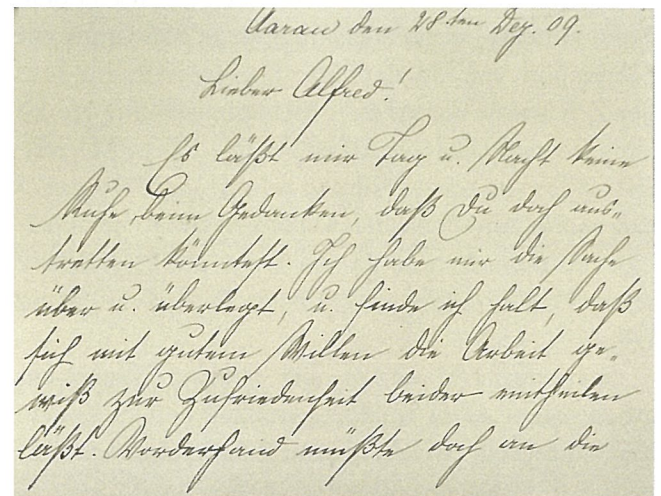 Aarau den 28ten Dez. 09.
Lieber Alfred!
Es läßt mir Tag u. Nacht keine
Ruhe beim Gedanken, daß Du doch aus-
tretten könntest. Ich habe mir die Sache
über u. überlegt, u. finde ich halt, daß
sich mit gutem Willen die Arbeit ge-
wiß zur Zufriedenheit beider eintheilen
läßt. Vorderhand müßte doch an die